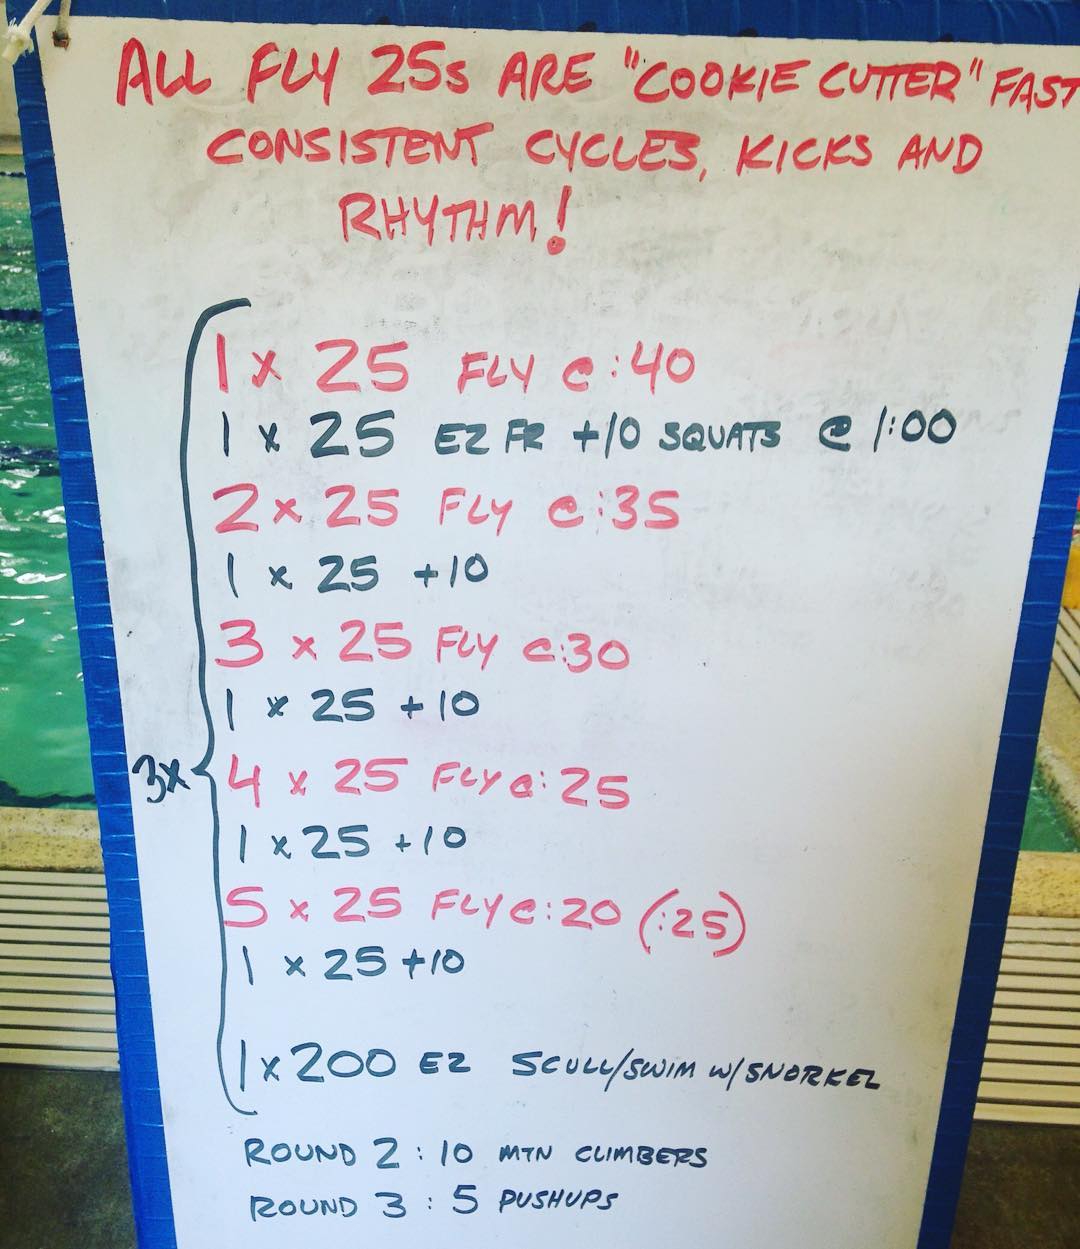 ALL FLY 25s ARE "COOKIE CUTTER" FAST
CONSISTENT CYCLES, KICKS AND
RHYTHM!
1 x 25 FLY @ :40
1 x 25 EZ FR +10 SQUATS @ 1:00
2 x 25 FLY @ :35
1 x 25 +10
3 x 25 FLY @ :30
1 x 25 +10
3x
4 x 25 FLY @ :25
1 x 25 +10
5 x 25 FLY @ :20 (:25)
1 x 25 +10
1 x 200 EZ SCULL/SWIM W/SNORKEL
ROUND 2 : 10 MTN CLIMBERS
ROUND 3 : 5 PUSHUPS